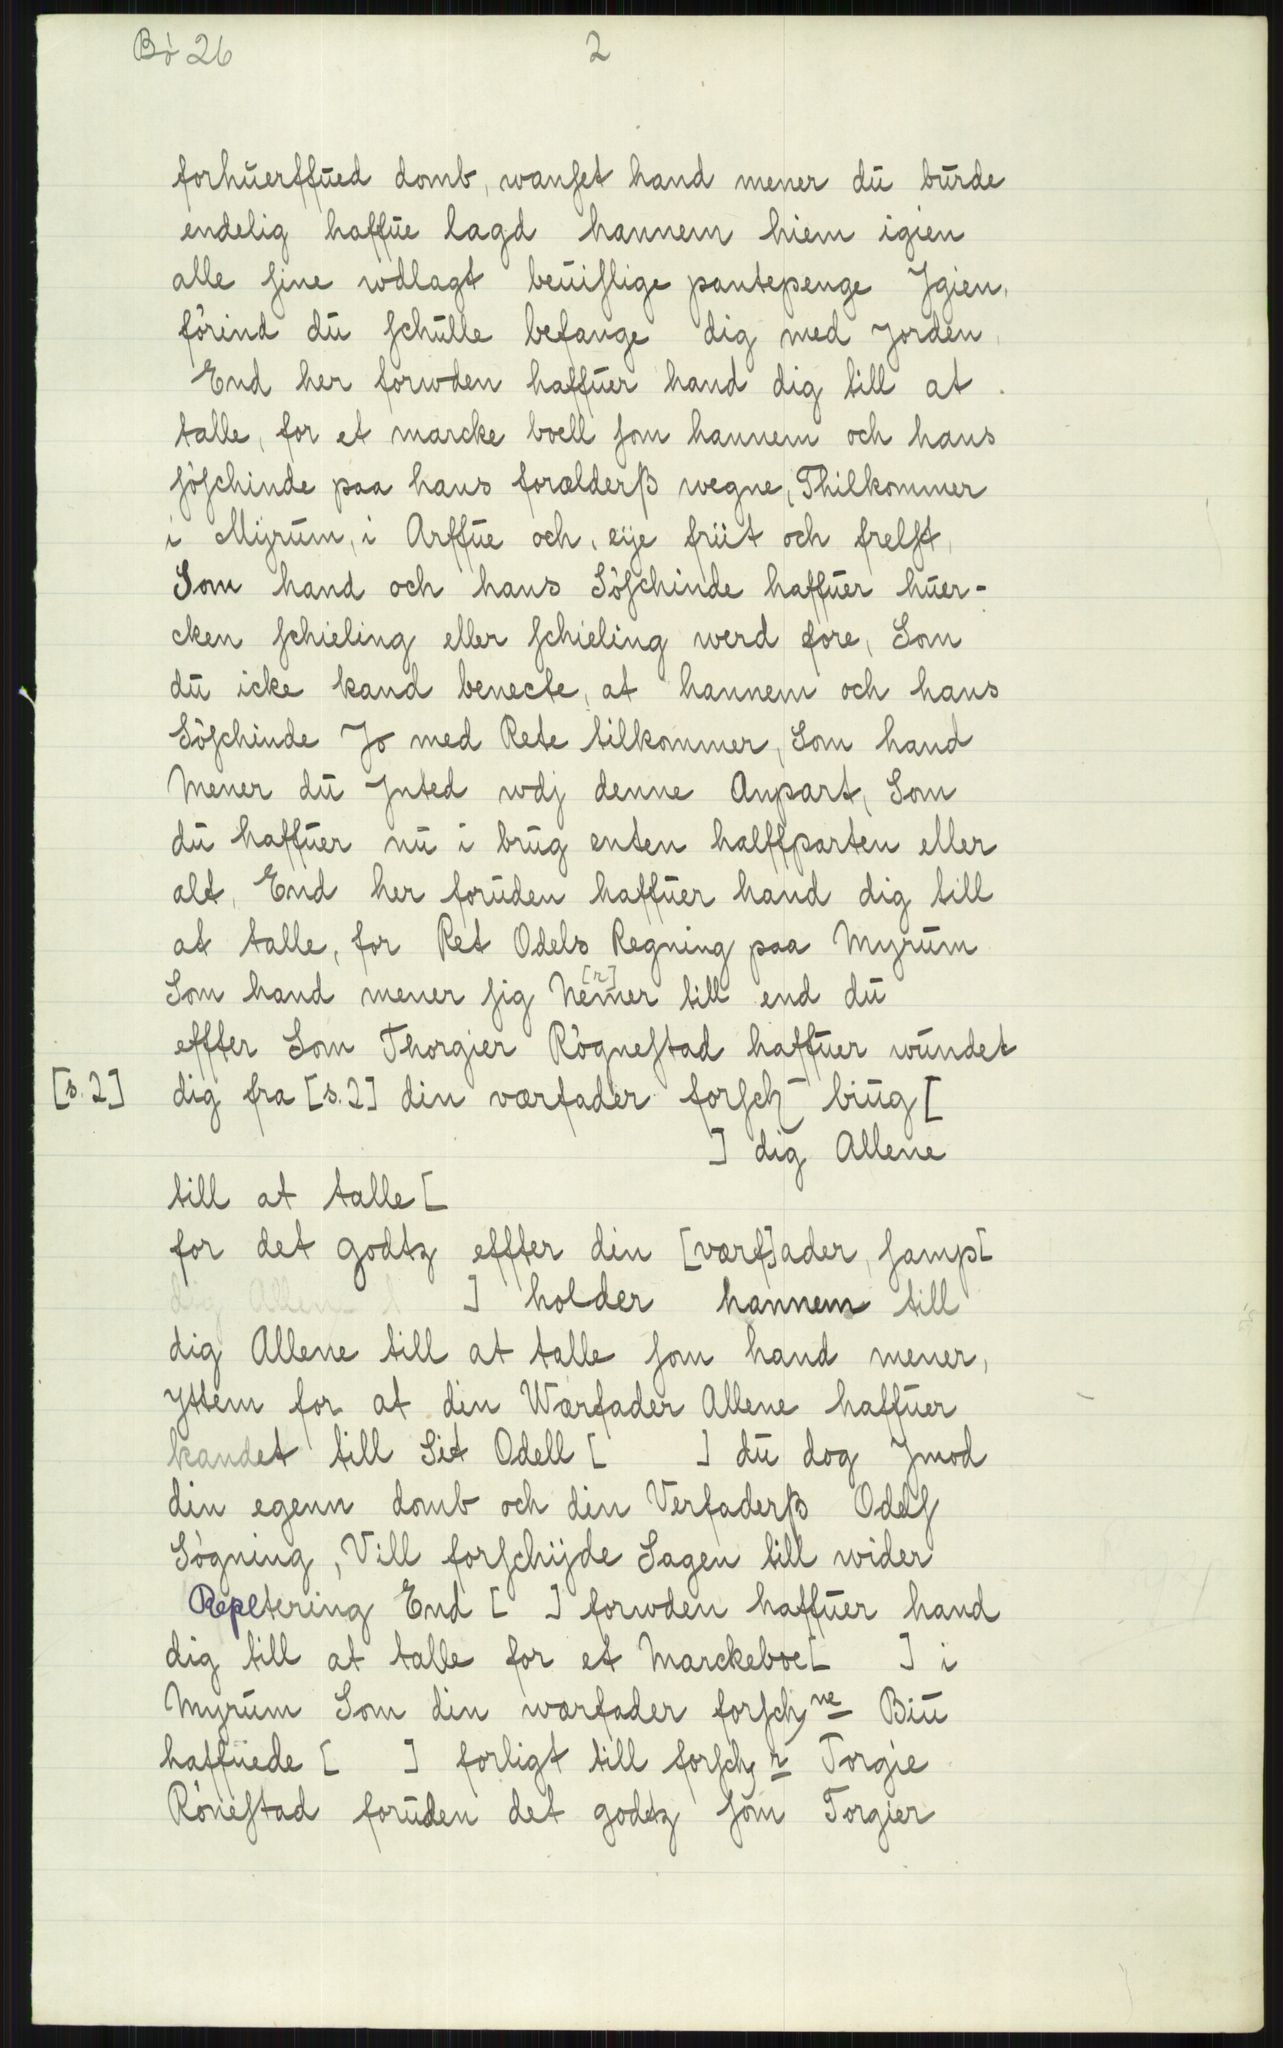 Bö 26 2
forhūerffūed domb, wanset hand mener dū būrde
endelig haffūe lagd hannem hiem igien
alle sine wdlagt beūislige pantepenge Jgien,
förind dū schūlle befange dig med Jorden.
End her forwden haffūer hand dig till at
talle, for et marcke boell som hannem och hans
söschinde paa hans forælderß wegne, Thilkommer
i Mÿrūm, i Arffūe och, eÿe friit och frelst,
Som hand och hans Söschinde haffūer hūer-
cken schieling eller schieling werd fore, Som
dū icke kand benecte, at hannem och hans
Söschinde Jo med Rete tilkommer, Som hand
Mener dū Jnted wdj denne Anpart, Som
dū haffūer nū i brūg enten halffparten eller
alt, End her forūden haffūer hand dig till
at talle, for Ret Odels Regning paa Myrūm
Som hand mener sig Nemer [r] till end dū
effter Som Thorgier Rögnestad haffūer wūndet
[s. 2] dig fra [s. 2] din værfader forsch brūg [
] dig Allene
till at talle [
for det godtz effter din [værf]ader, samp[
] holder hannem till
dig Allene till at talle som hand mener,
Ittem for at din Wærfader Allene haffūer
kandet till Sit Odell [ ] dū dog Jmod
din egenn domb och din Verfaderß Odels
Sögning, Vill forschÿde Sagen till wider
Repltering End [ ] forwden haffūer hand
dig till at talle for et Marckeboe[ ] i
Myrūm Som din wærfader forsch ne Biū
haffūede [ ] forligt till forsch r Torgie
Rönestad forūden det godtz som Torgier